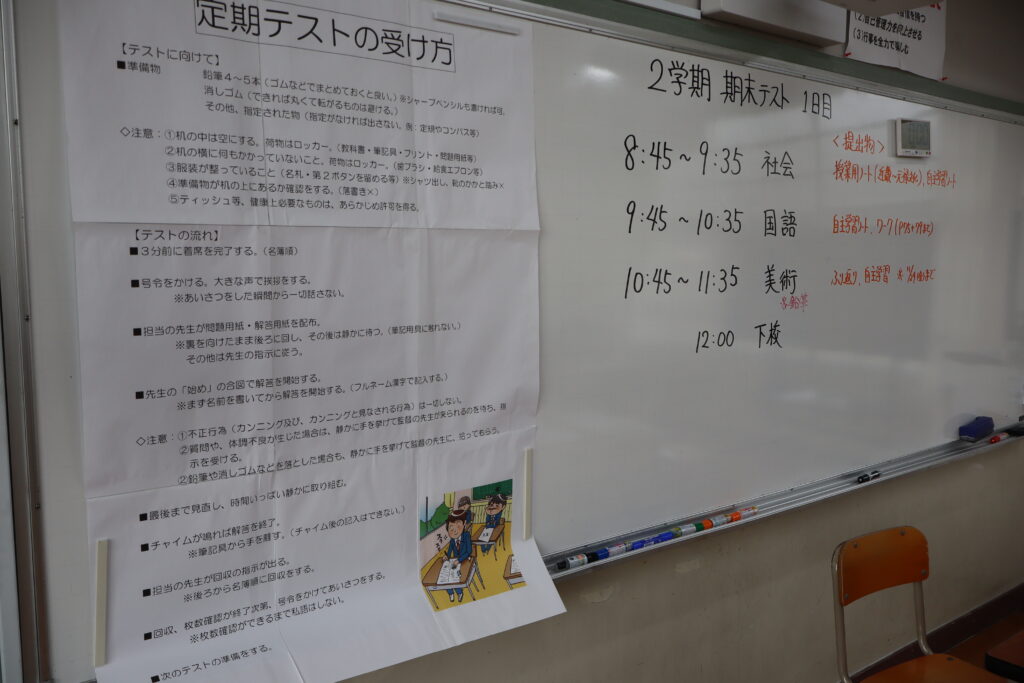 定期テストの受け方
【テストに向けて】
■準備物　鉛筆4～5本（ゴムなどでまとめておくと良い。）※シャープペンシルも書ければ可。
消しゴム（できれば丸くて転がるものは避ける。）
その他、指定された物（指定がなければ出さない。例：定規やコンパス等）
◇注意：①机の中は空にする。荷物はロッカー。（教科書・筆記具・プリント・問題用紙等）
②机の横に何もかかっていないこと。荷物はロッカー。（歯ブラシ・給食エプロン等）
③服装が整っていること（名札・第2ボタンを留める等）※シャツ出し、靴のかかと踏み×
④準備物が机の上にあるか確認をする。（落書き×）
⑤ティッシュ等、健康上必要なものは、あらかじめ許可を得る。
【テストの流れ】
■3分前に着席を完了する。（名簿順）
■号令をかける。大きな声で挨拶をする。
※あいさつをした瞬間から一切話さない。
■担当の先生が問題用紙・解答用紙を配布。
※裏を向けたまま後ろに回し、その後は静かに待つ。（筆記用具に触れない。）
その他は先生の指示に従う。
■先生の「始め」の合図で解答を開始する。
※まず名前を書いてから解答を開始する。（フルネーム漢字で記入する。）
◇注意：①不正行為（カンニング及び、カンニングと見なされる行為）は一切しない。
②質問や、体調不良が生じた場合は、静かに手を挙げて監督の先生が来られるのを待ち、指
示を受ける。
②鉛筆や消しゴムなどを落とした場合も、静かに手を挙げて監督の先生に、拾ってもらう。
■最後まで見直し、時間いっぱい静かに取り組む。
■チャイムが鳴れば解答を終了。
※筆記具から手を離す。（チャイム後の記入はできない。）
■担当の先生が回収の指示が出る。
※後ろから名簿順に回収をする。
■回収、枚数確認が終了次第、号令をかけてあいさつをする。
※枚数確認ができるまで私語はしない。
■次のテストの準備をする。
(2)自己管理力を向上させる
(3)行事を全力で楽しむ
2学期 期末テスト 1日目
＜提出物＞
8:45～9:35 社会 授業用ノート 自主学習ノート
9:45～10:35 国語 自主学習ノート、ワーク
10:45～11:35 美術 ふり返り、自主学習
12:00 下校